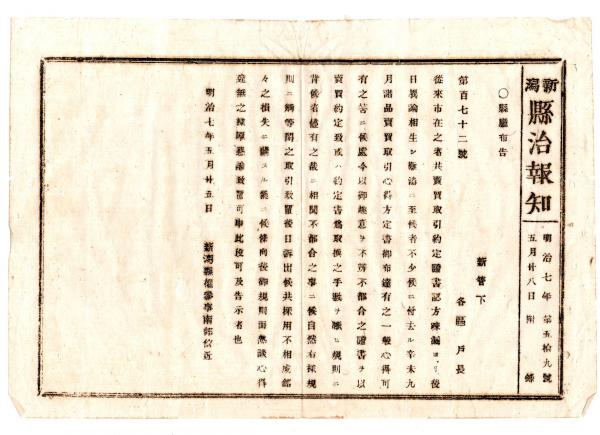 新潟
縣治報知
明治七年 第五拾九號
五月廿八日 附錄
〇縣廳布告
新管下
各區 戸長
第百七十二號
從來市在之者共賣買取引約定證書認方疎漏ヨリ後
日異論相生シ難澁ニ至候者不少候ニ付去ル辛未九
月諸品賣買取引心得方定書御布達有之一般心得可
有之筈ニ候處今以御趣意ヲ不辨不都合之證書ヲ以
賣買約定致或ハ約定書爲取換之手數ヲ 規則ニ
背候者儘有之哉ニ相聞不都合之事ニ候自然右様規
則ニ觸等閑之取引致置後日訴出候共採用不相成
々之損失ニ 候條向後御規則面熟讀心得
違無之様 可申此段可及告示者也
明治七年五月廿五日
新潟縣權參事南部信近